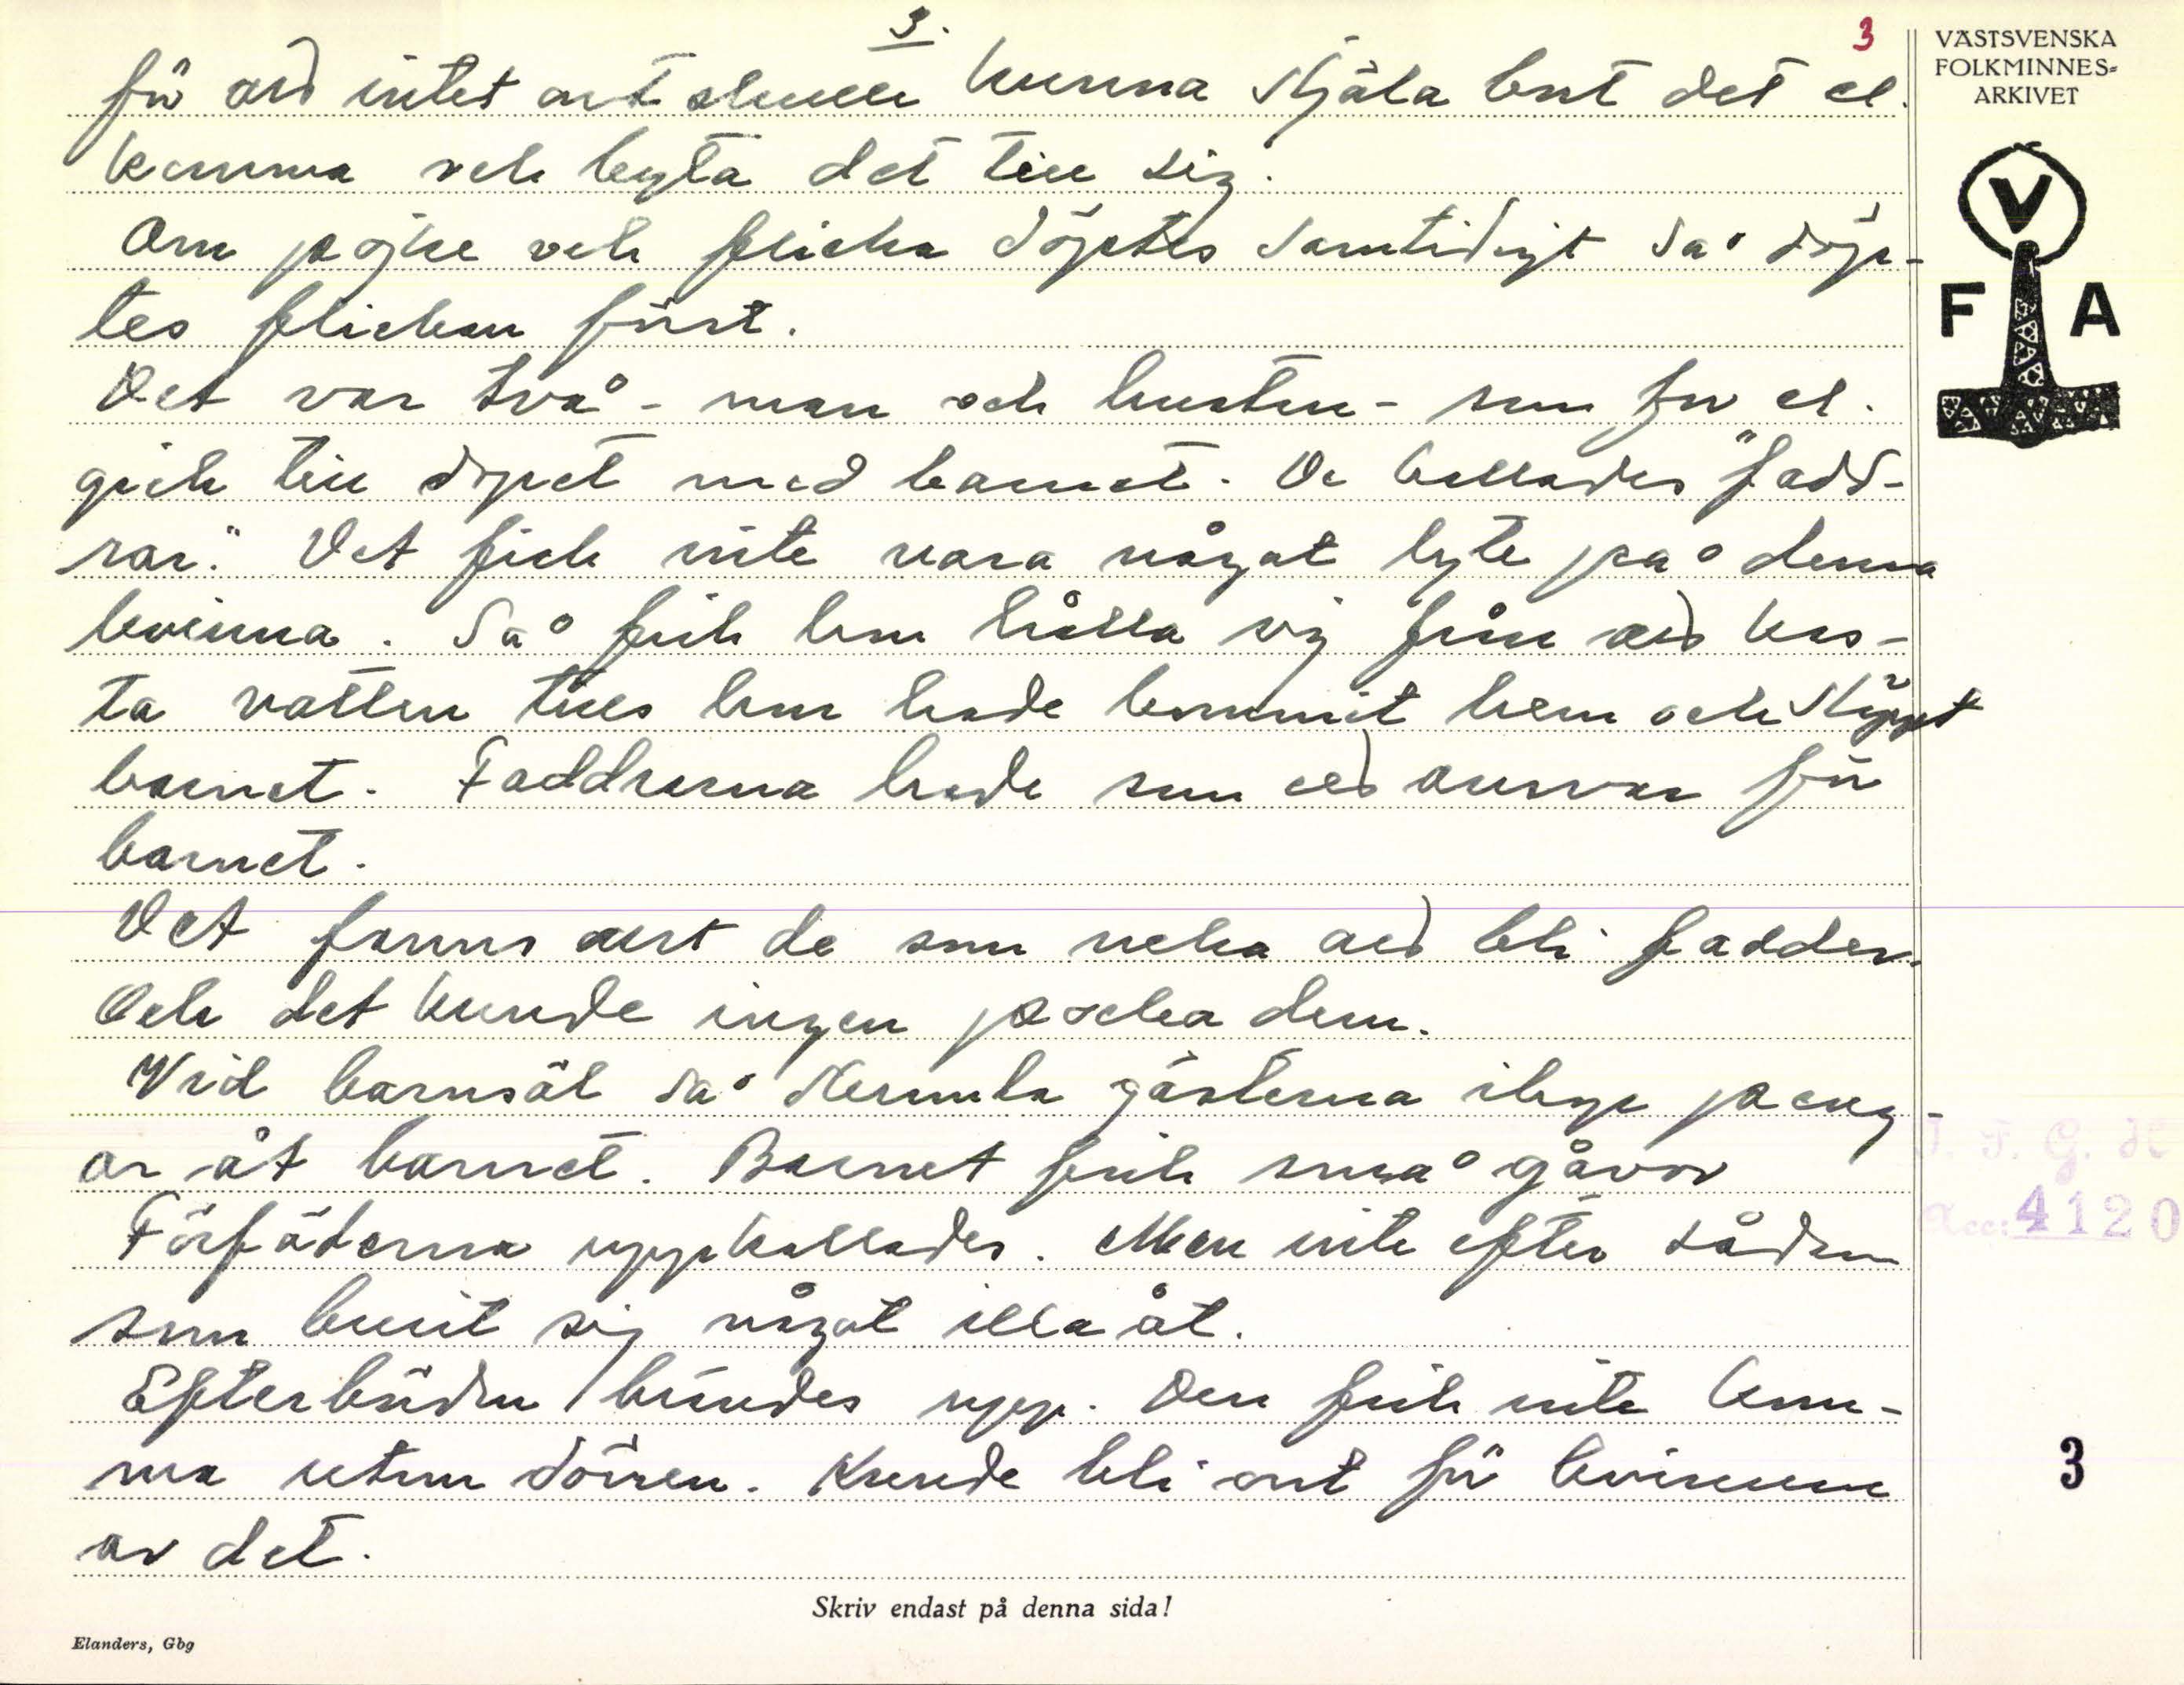 3.
3
VÄSTSVENSKA
FOLKMINNES=
ARKIVET
för att intet ont skulle kunna stjäla bort det el.
komma och byta det till sig.
Om pojke och flicka döptes samtidigt så döp-
tes flickan först.
Det var två - man och hustru - som for el.
gick till dopet med barnet. De kallades "fadd-
rar". Det fick inte vara något lyte på denna
kvinna. Så fick hon hålla sig från att kas-
ta vatten tills hon hade kommit hem och släppt
barnet. Faddrarna hade som att ansvar för
barnet.
Det fanns allt de som neka att bli fadder.
Och det kunde ingen påska dem.
Vid barnsöl så skramla gästerna ihop peng-
ar åt barnet. Barnet fick små gåvor
Förfäderna uppkallades. Men inte efter sådan
som burit sig något illa åt.
Efterbörden brändes upp. Den fick inte kom-
ma utom dörren. Kunde bli ont för kvinnan
av det.
V
F A
I. F. G. H
Acc: 4120
3
Skriv endast på denna sida!
Elanders, Gbg